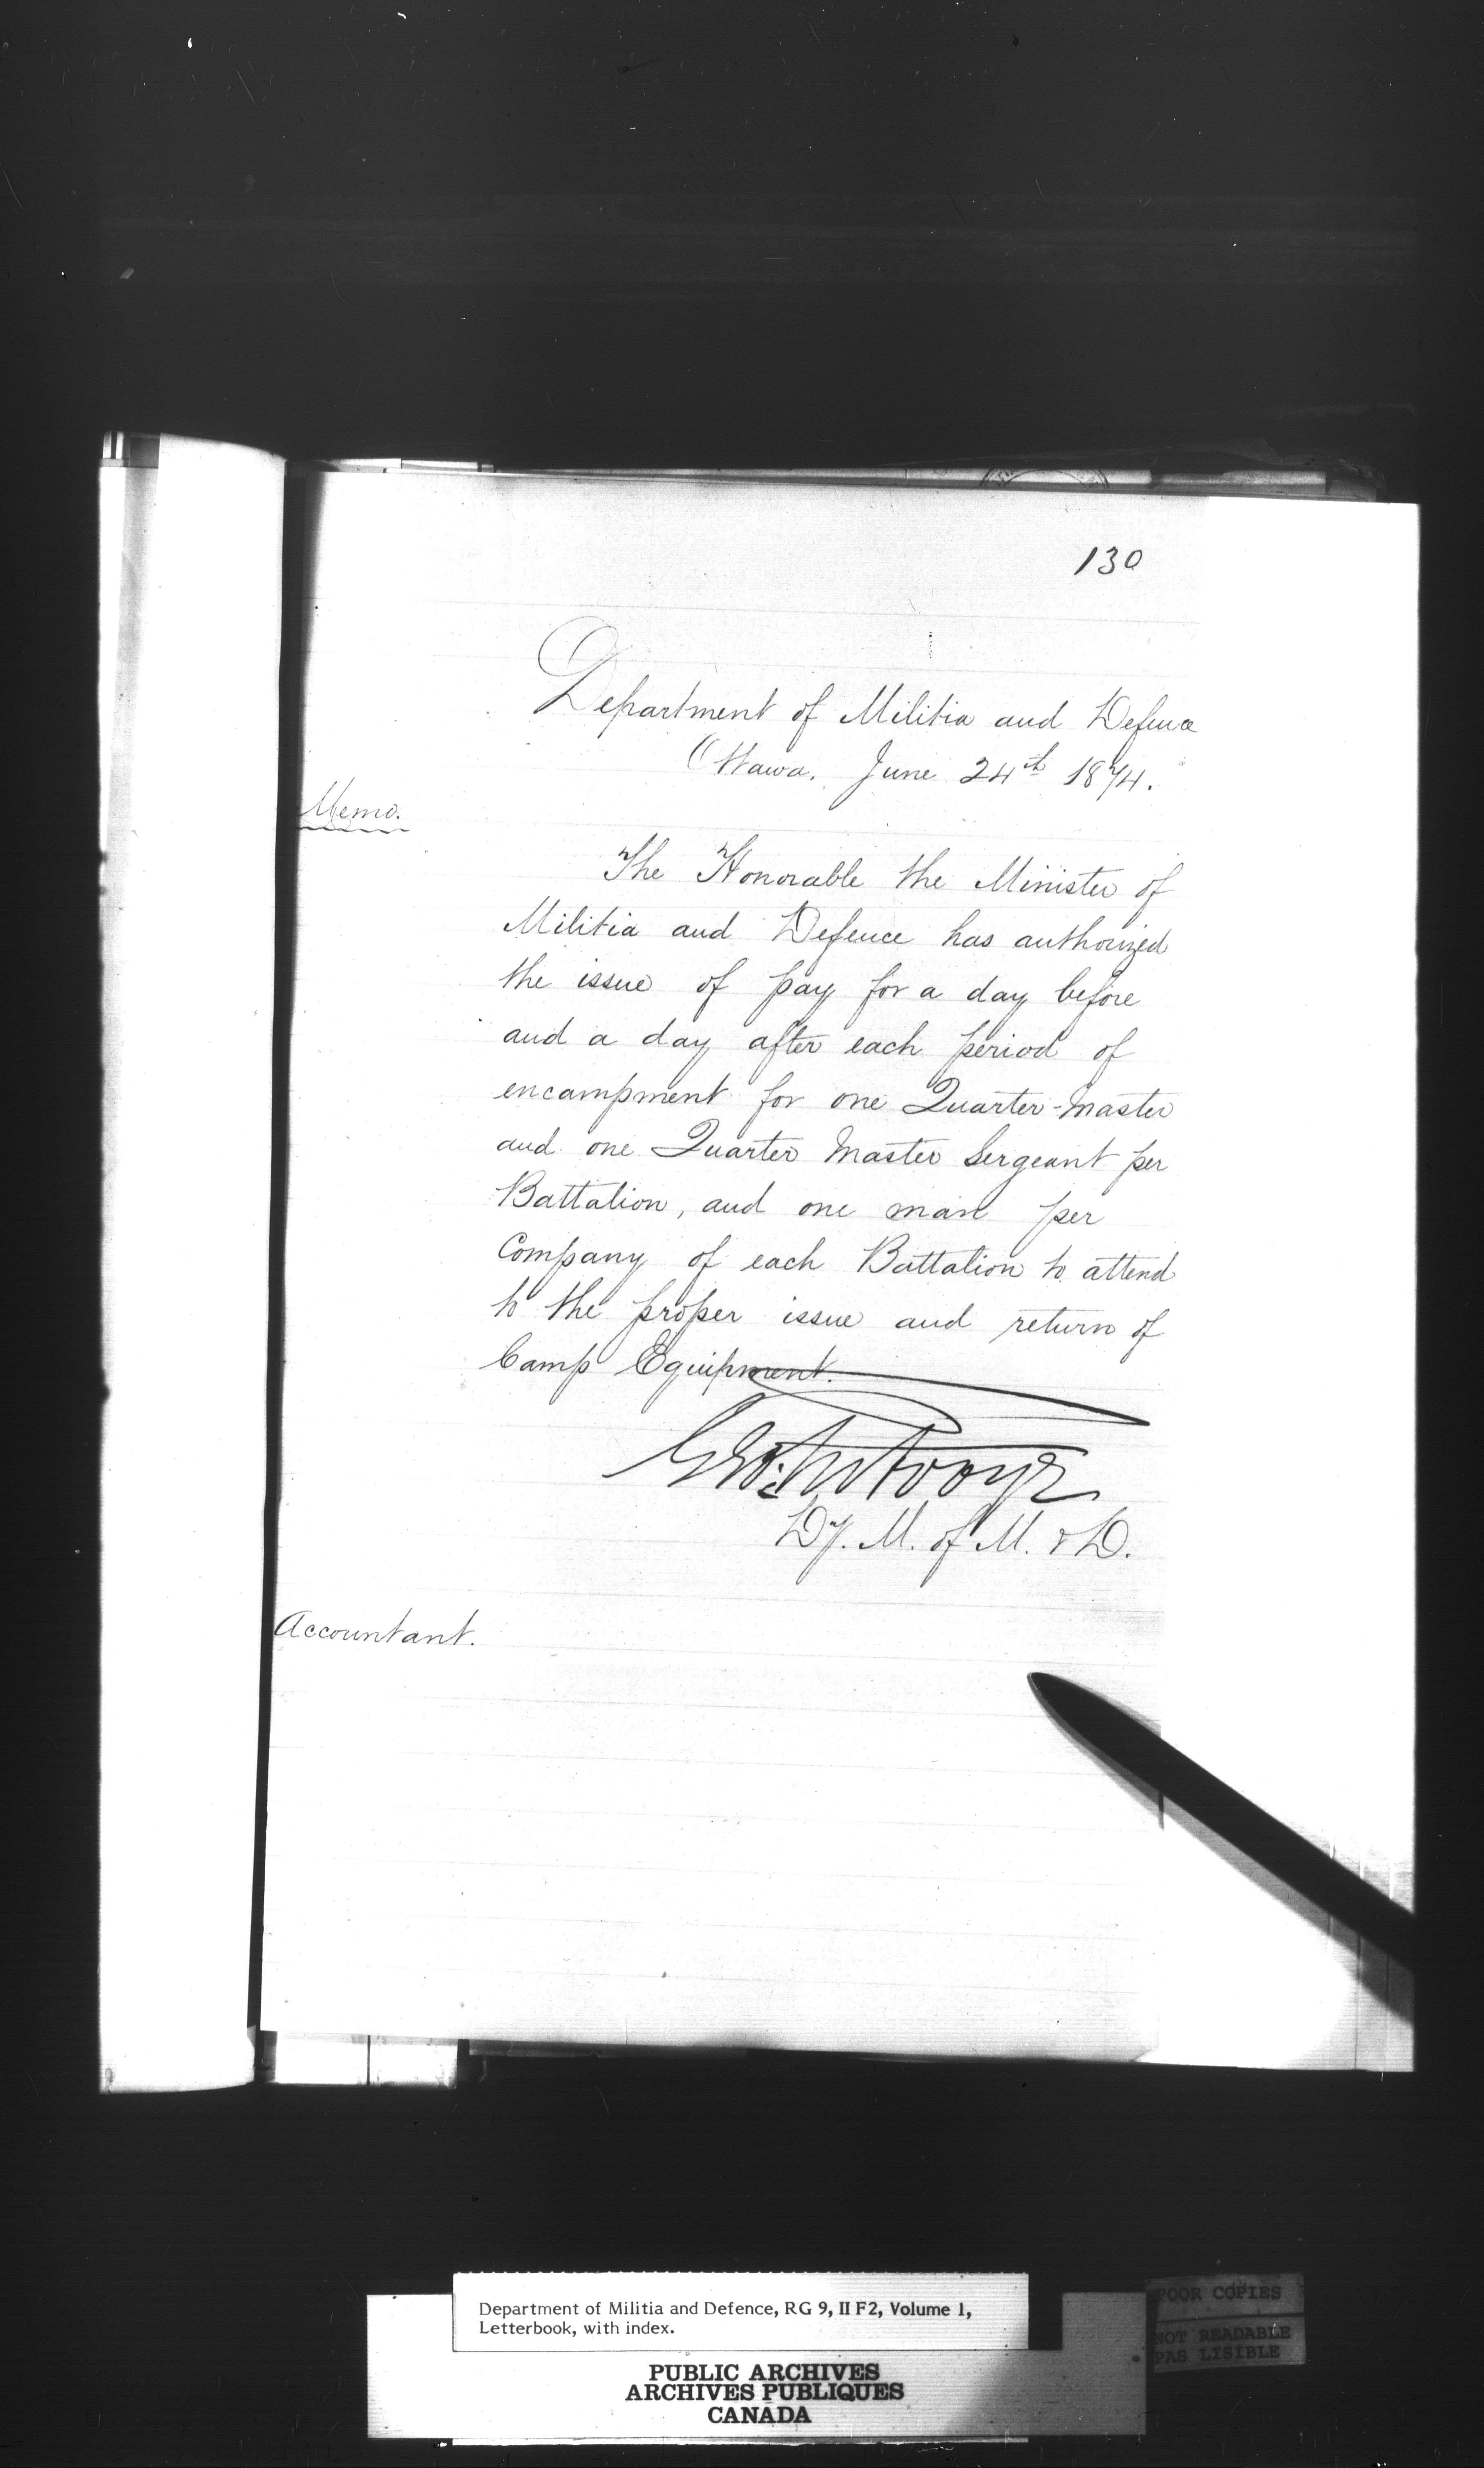 130
Department of Militia and Defence
Ottawa. June 24th 1874.
Memo.
The Honorable the Minister of
Militia and Defence has authorized
the issue of pay for a day before
and a day after each period of
encampment for one Quarter-Master
and one Quarter Master Sergeant per
Battalion, and one man per
Company of each Battalion to attend
to the proper issue and return of
Camp Equipment.
Dy. M. of M. & D.
Accountant.
Department of Militia and Defence, RG 9, II F2, Volume 1,
Letterbook, with index.
PUBLIC ARCHIVES
ARCHIVES PUBLIQUES
CANADA
POOR COPIES
NOT READABLE
PAS LISIBLE